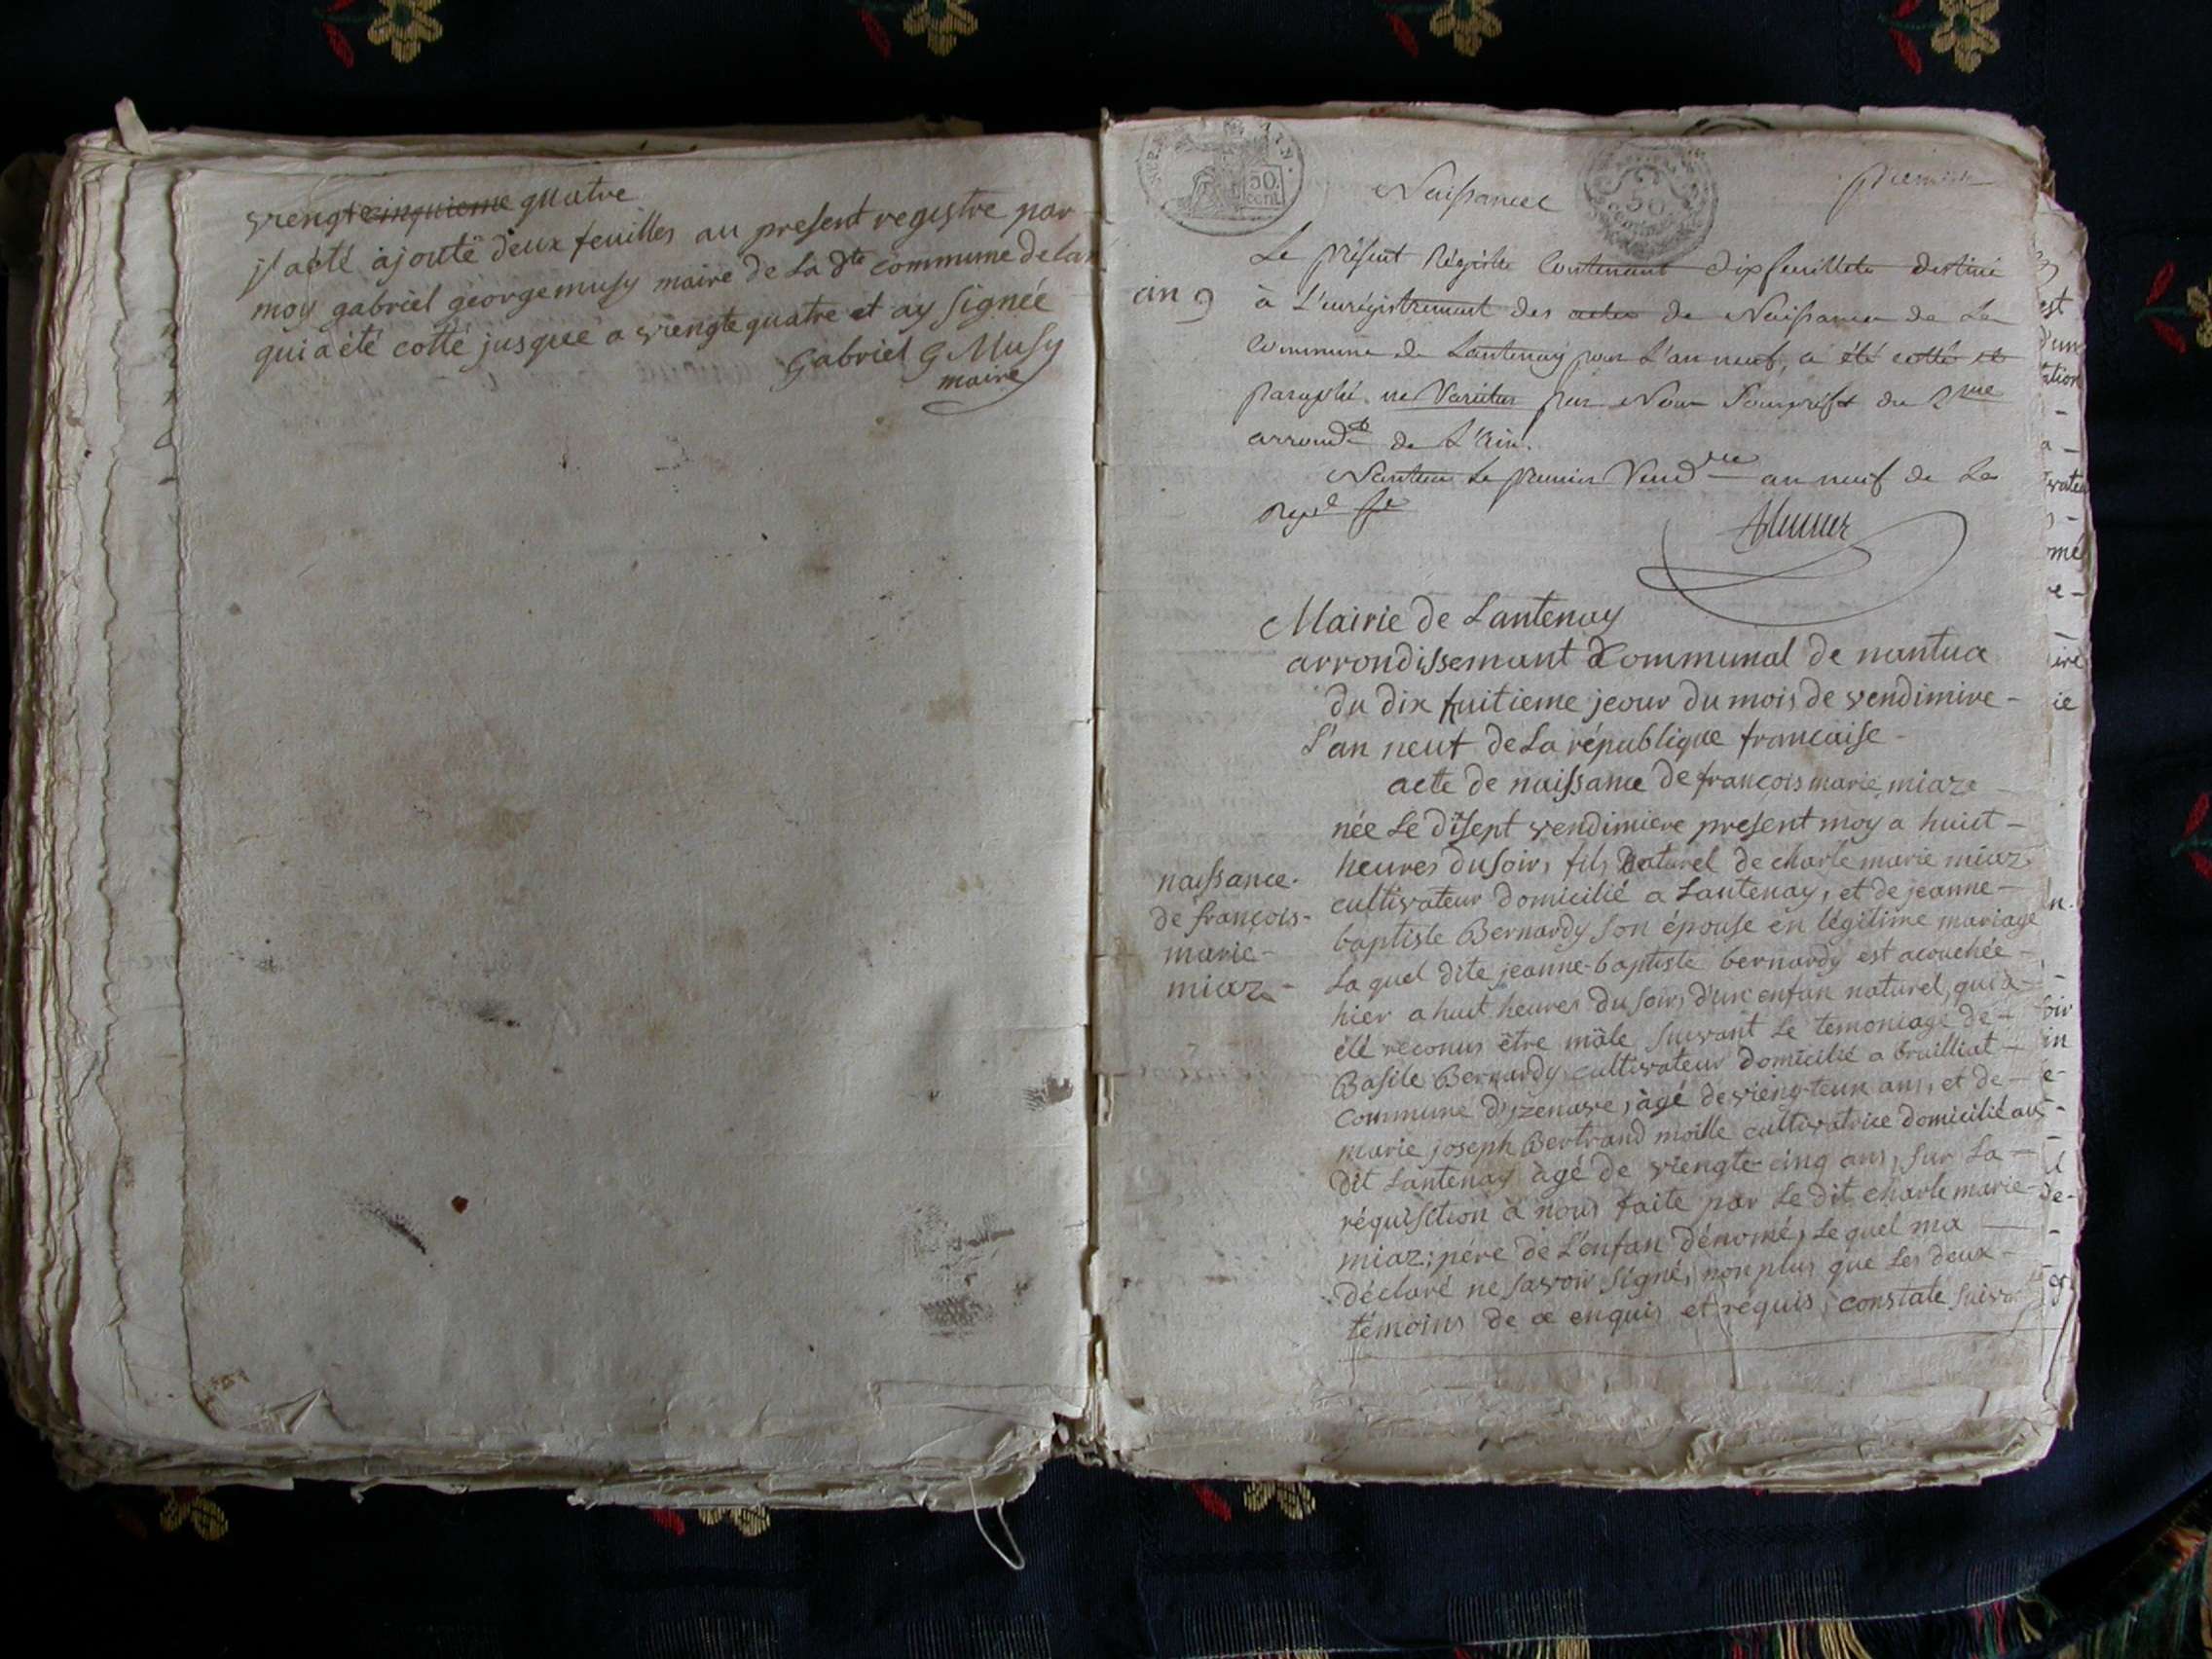 viengt cinquieme quatre
jl aété ajouté deux feuilles au present registre par
moy gabriel george musy maire de la dte commune de lan
qui a été cotté jusque a viengte quatre et ay signée
Gabriel G Musy
maire
DEP. AIN.
50 cent.
Naissance
premier
50
an 9
Le présent Régistre Contenant dix feuillets destiné
à L'enrégistrement des actes de Naissance de La
Commune de Lantenay pour L'an neuf, a été cotté et
paraphé ne Varietur par Nous Souspréfet du 2me
arrondt de L'Ain.
Nantua Le premier Vendre an neuf de La
Repe fe
Mairie de Lantenay
arrondissemant Communal de nantua
du dix huitieme jeour du mois de vendimire -
L'an neuf de La républigue francaise -
acte de naissance de françois marie miaz
née Le disept vendimiere present moy a huict -
heures du soir, fils naturel de charle marie miaz
cultivateur domicilié a Lantenay, et de jeanne -
baptiste Bernardy son épouse en légitime mariage
La quel dite jeanne-baptiste bernardy est acouchée -
hier a huit heures du soir, d'un enfan naturel, qui a -
été reconus être mâle suivant Le temoniage de -
Basile Bernardy cultivateur domicilié a brailliat -
commune d'izenave, âgé de vieng-teun ans, et de -
marie joseph Bertrand moille cultivatrice domicilié au
dit Lantenay âgé de viengte cinq ans, sur La -
réquisition a nous faite par Le dit charle marie -
miaz, pére de L'enfan dénomé, Le quel ma
déclaré ne savoir signé, non plus que Les deux -
témoins de ce enquis et requis, constaté suiva
naissance.
de françois-
marie -
miaz -